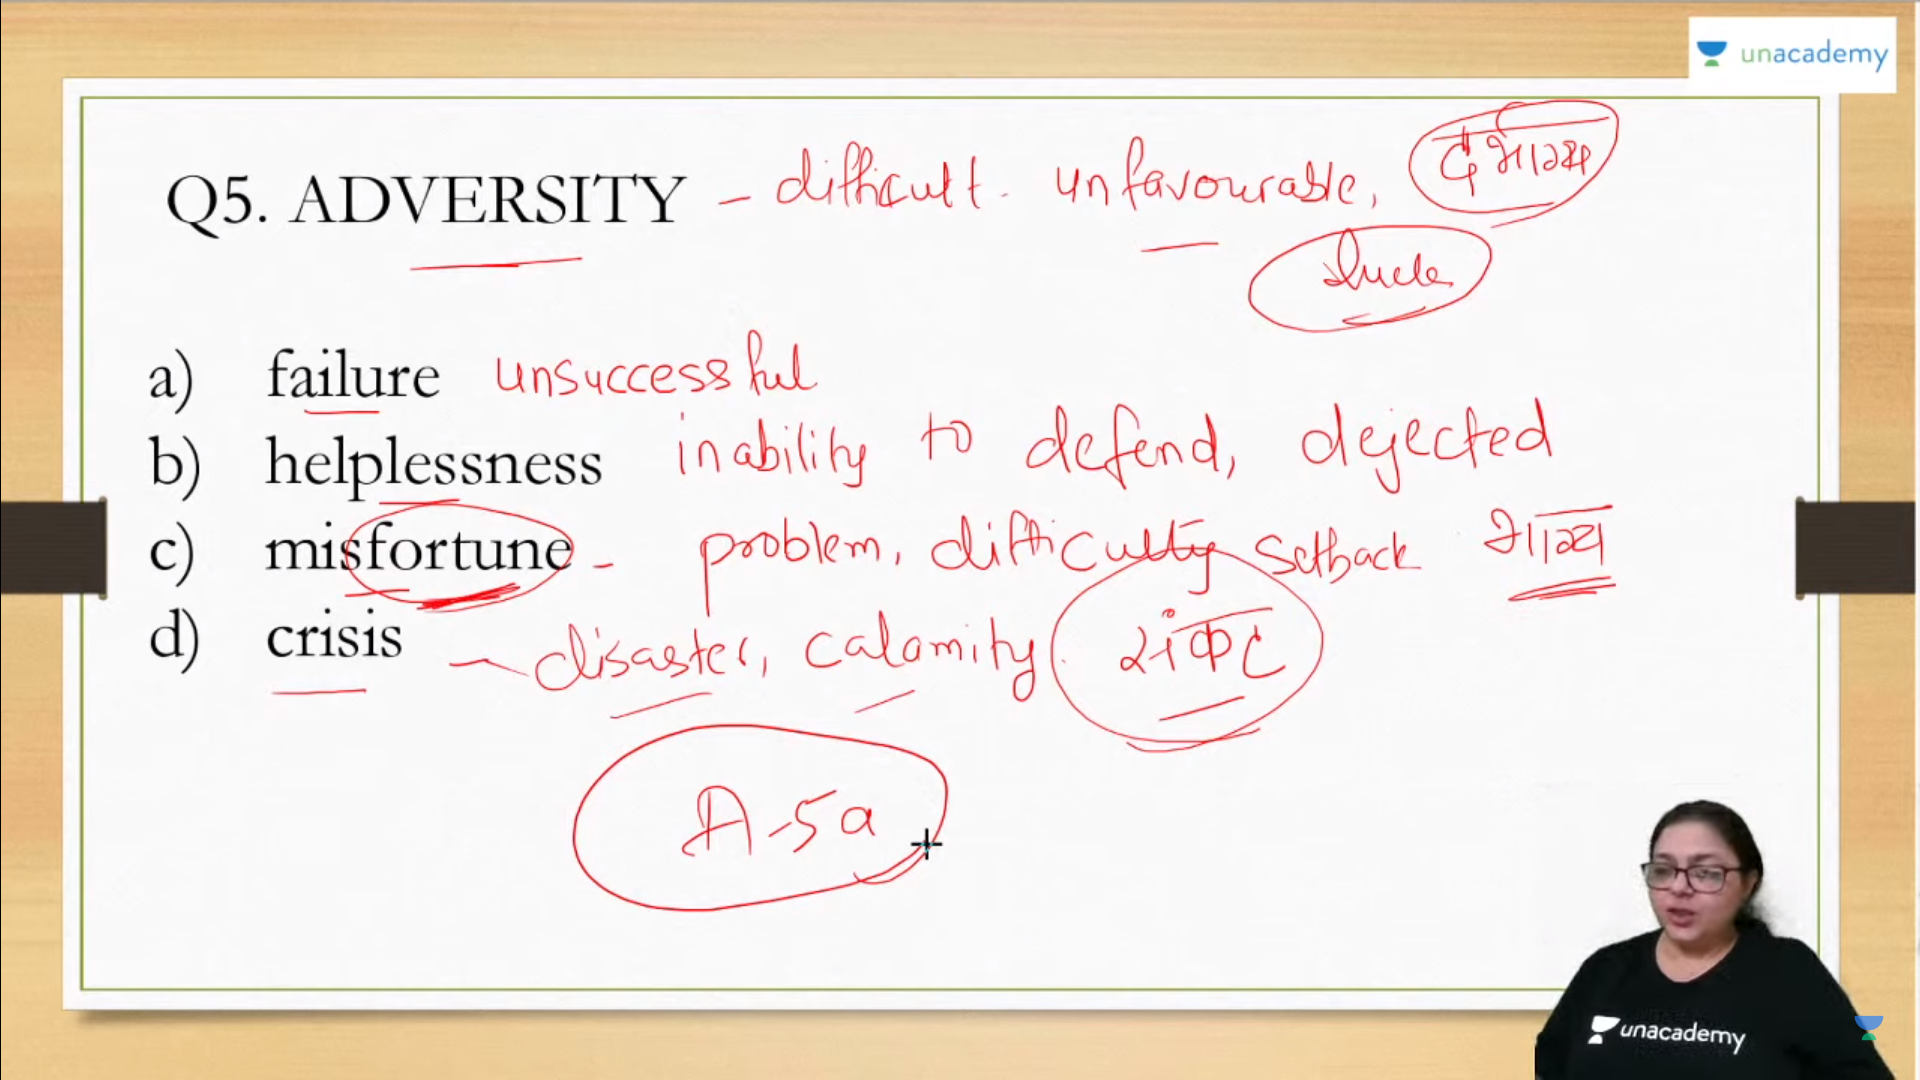 unacademy
Q5. ADVERSITY - difficult. unfavourable, दुर्भाग्य
luck
a) failure unsuccessful
b) helplessness inability to defend, dejected
c) misfortune - problem, difficulty setback भाग्य
d) crisis - disaster, calamity. संकट
A-5a
unacademy